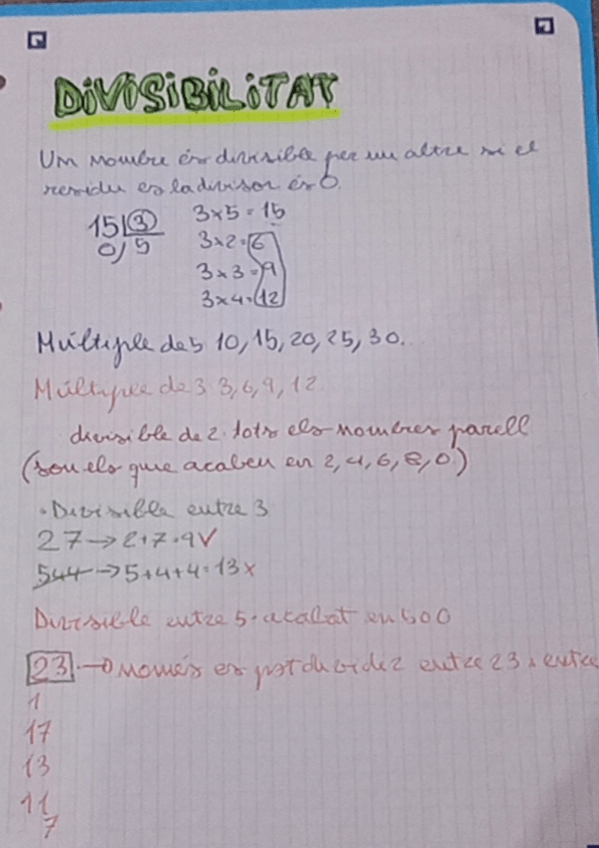 DIVISIBILITAT
Un nombre és divisible per un altre si el
residu es la divisor és 0.
15 | 3
0/ 5
3x5=15
3x2=6
3x3=9
3x4=12
Múltiple de 5 10, 15, 20, 25, 30.
Múltiple de 3 3, 6, 9, 12
divisible de 2. tots els nombres parell
(son els que acaben en 2, 4, 6, 8, 0.)
· Divisible entre 3
27 → 2+7=9 ✓
544 → 5+4+4=13 x
Divisible entre 5. acabat en 5 o 0
23 → només es pot dividir entre 23 i entre
1
17
13
11
7